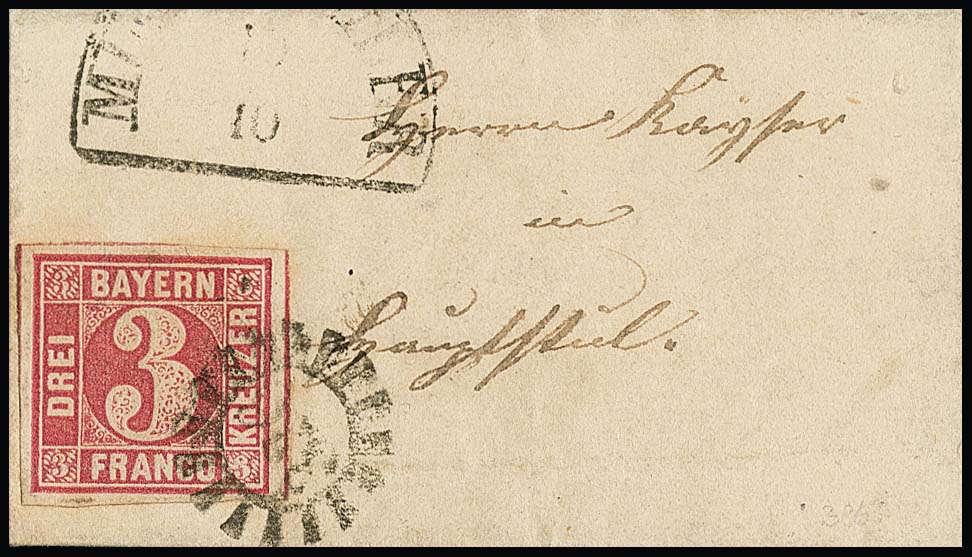 10
Herrn Kayser
in
Hauptstul.
BAYERN
DREI
3
KREUZER
FRANCO
3
3
3
3